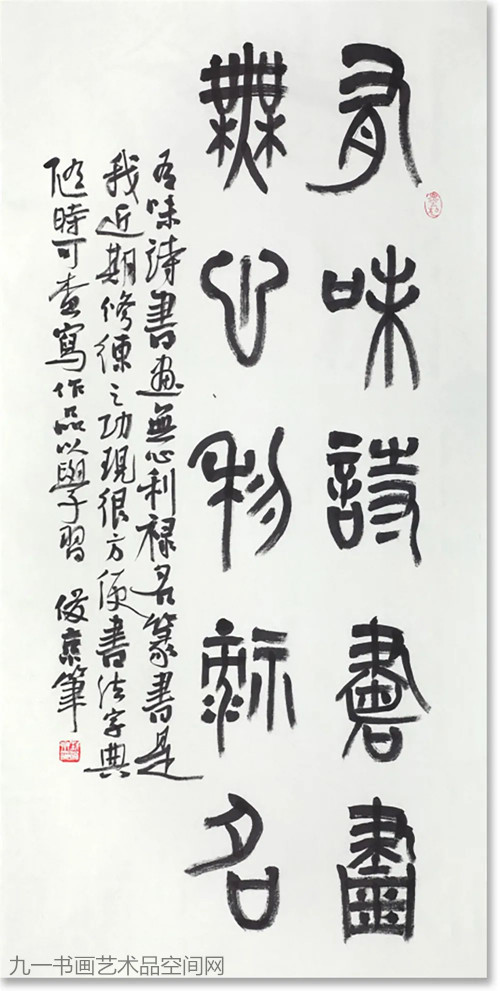 有味詩書畫
無心利祿名
有味詩書畫無心利禄名篆書是
我近期修練之功現很方便書法字典
隨時可查寫作品以學習 俊京筆
九一书画艺术品空间网